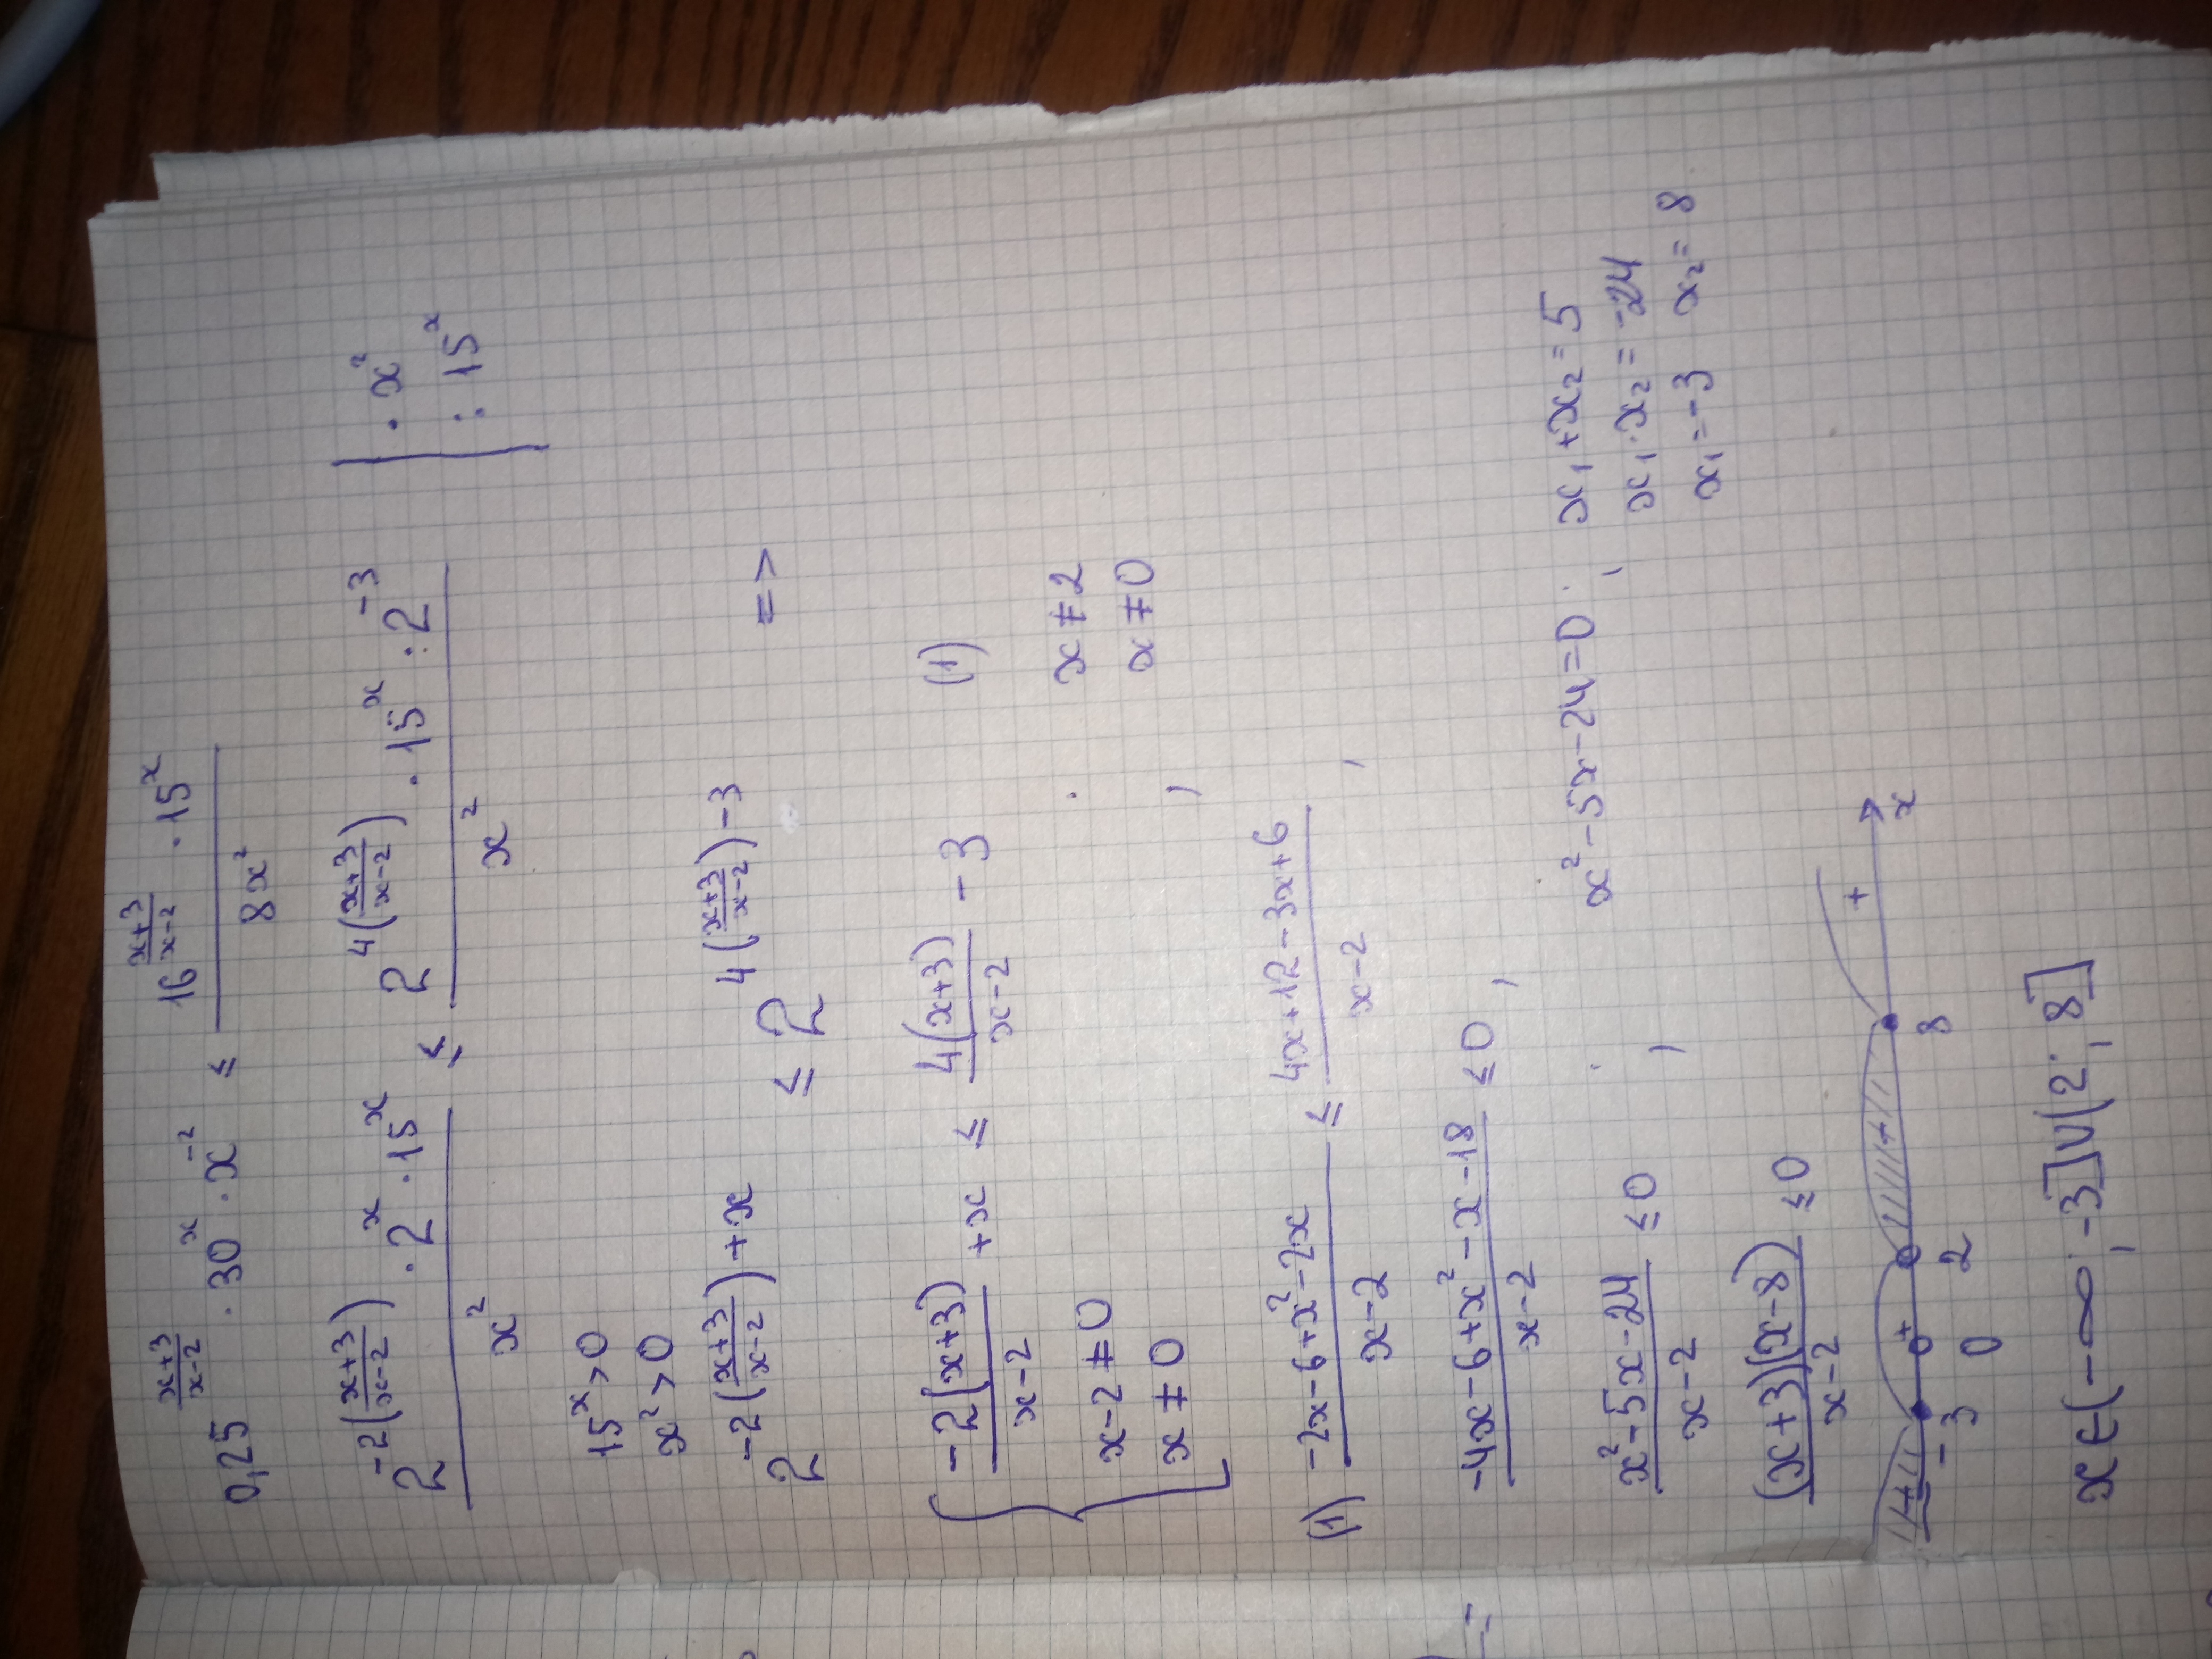 0,25^((x+3)/(x-2)) · 30^x · x^(-2) ≤ (16^((x+3)/(x-2)) · 15^x)/(8x²)
(2^(-2((x+3)/(x-2))) · 2^x · 15^x)/x² ≤ (2^(4((x+3)/(x-2))) · 15^x : 2^(-3))/x² | · x² : 15^x
15^x > 0
x² > 0
2^(-2((x+3)/(x-2))+x) ≤ 2^(4((x+3)/(x-2))-3) =>
{ (-2(x+3))/(x-2) + x ≤ (4(x+3))/(x-2) - 3 (1)
x-2 ≠ 0 ; x ≠ 2
x ≠ 0 x ≠ 0
(1) (-2x-6+x²-2x)/(x-2) ≤ (4x+12-3x+6)/(x-2) ,
(-4x-6+x²-x-18)/(x-2) ≤ 0 ,
(x²-5x-24)/(x-2) ≤ 0 ; x²-5x-24=0 ; x₁+x₂=5
x₁·x₂=-24
x₁=-3 x₂=8
((x+3)(x-8))/(x-2) ≤ 0
+ + + +
-3 0 2 8 x
x∈(-∞;-3]∪(2;8]